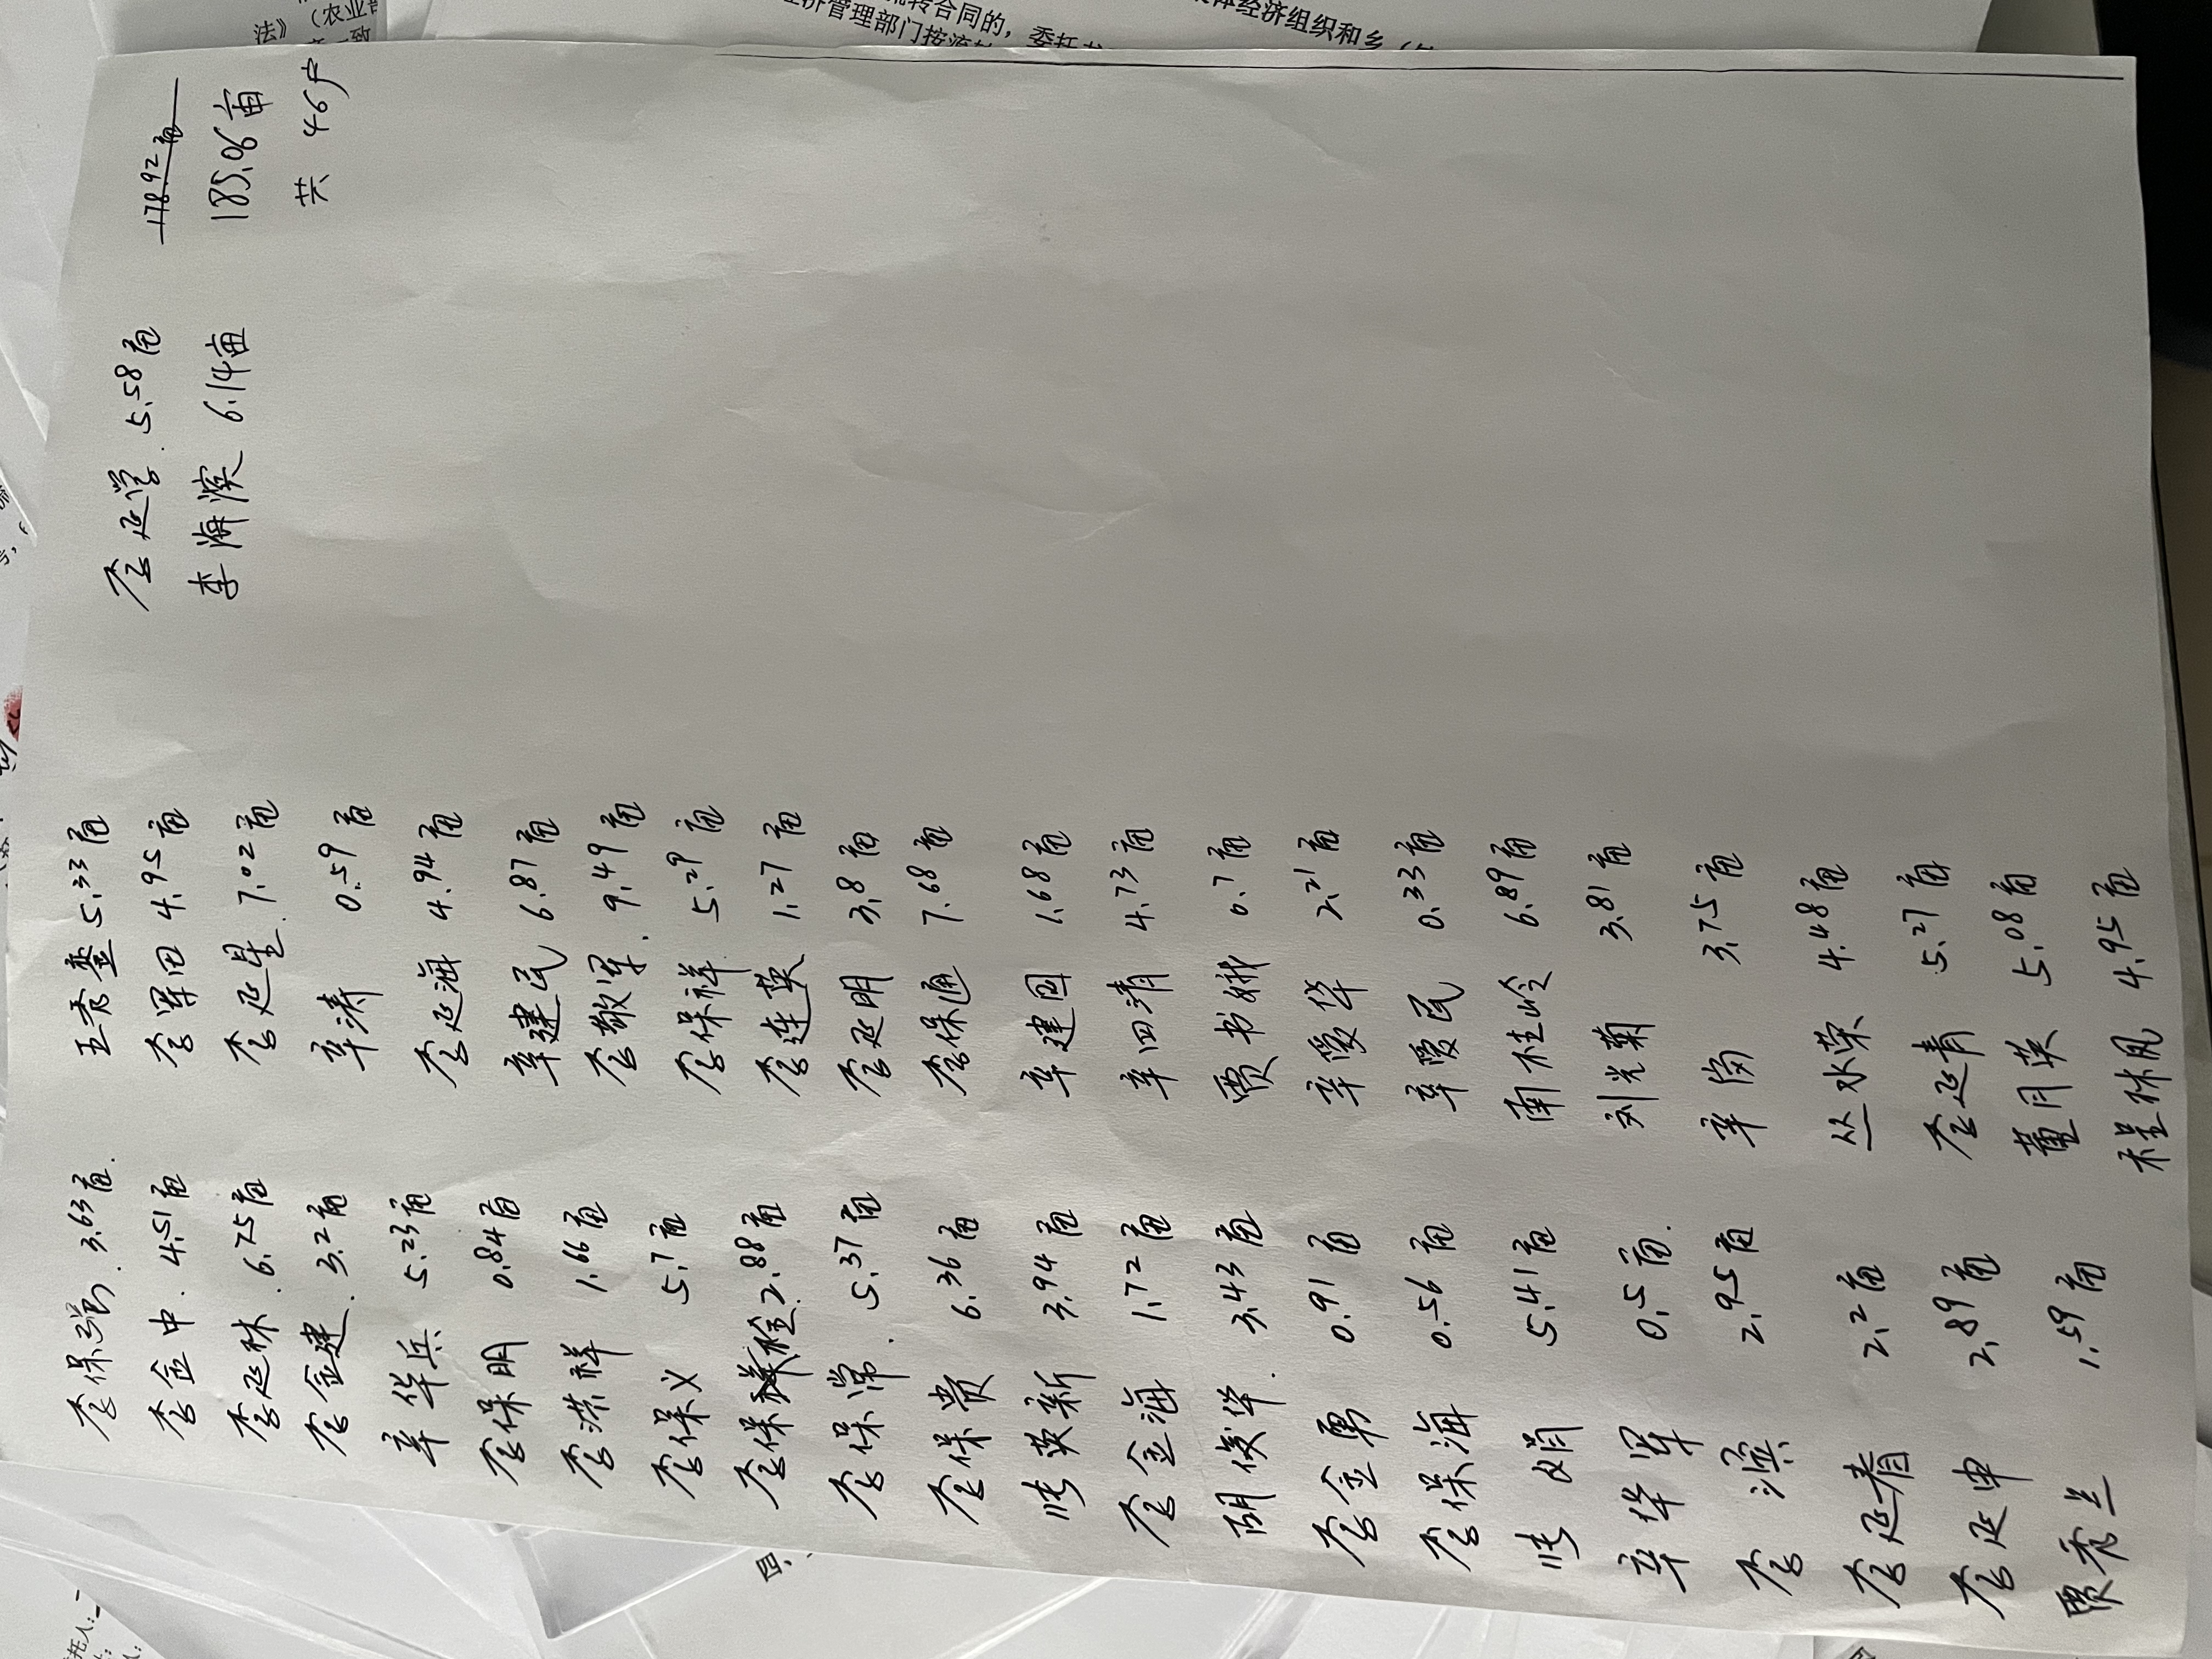 李保强 3.63亩
李金中 4.51亩
李延林 6.75亩
李金建 3.2亩
辛华兵 5.23亩
李保明 0.84亩
李洪祥 1.66亩
李保义 5.7亩
李保检 2.88亩
李保常 5.37亩
李保贵 6.36亩
张英新 3.94亩
李金海 1.72亩
阴俊华 3.43亩
李金勇 0.91亩
李保海 0.56亩
张娟 5.41亩
辛华军 0.5亩
李滨 2.95亩
李延春 2.2亩
李延申 2.89亩
贾秀兰 1.59亩
王秀銮 5.33亩
李军田 4.95亩
李延星 7.02亩
辛涛 0.59亩
李延海 4.94亩
辛建民 6.87亩
李敬军 9.49亩
李保祥 5.29亩
李连英 1.27亩
李延明 3.8亩
李保通 7.68亩
辛建国 1.68亩
辛四清 4.73亩
贾书娥 0.7亩
辛爱华 2.21亩
辛爱民 0.33亩
南桂岭 6.89亩
刘光菊 3.81亩
辛岗 3.75亩
丛水荣 4.48亩
李延青 5.27亩
董月英 5.08亩
程林凤 4.95亩
李延学 5.58亩
李海滨 6.14亩
178.92亩
185.06亩
共 46户
法》（农业部
流转合同的，委托书
经济管理部门按流转
集体经济组织和乡（镇
四、